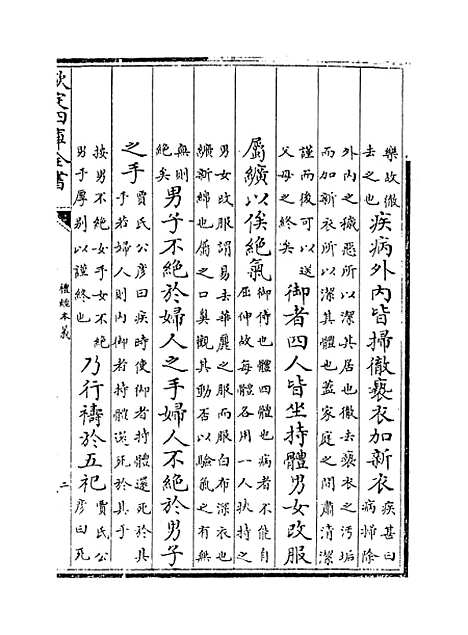 樂故徹
去之也
疾病外內皆掃徹褻衣加新衣
疾甚曰
病掃除
外內之穢惡所以潔其居也徹去褻衣之污垢
而加新衣所以潔其體也蓋家庭之間肅清潔
謹而後可以送
父母之終矣
御者四人皆坐持體男女改服
屬纊以俟絕氣
御侍也體四體也病者不能自
屈伸故每體各用一人扶持之
男女改服謂易去華麗之服而服白布深衣也
纊新綿也屬之口鼻觀其動否以驗氣之有無
無則
絕矣
男子不絕於婦人之手婦人不絕於男子
之手
賈氏公彥曰疾時使御者持體還死於其
手若婦人則內御者持體還死於其手
按男不絕女手女不絕
男手厚别以謹終也
乃行禱於五祀
賈氏公
彥曰死
欽定四庫全書
禮經本義
二